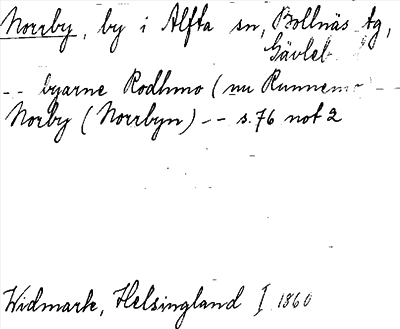 Norrby, by i Alfta sn, Bollnäs tg,
Gävleb
-- byarne Rodhmo (nu Runnemo) --
Norby (Norrbyn) -- s. 76 not 2
Widmark, Helsingland I 1860